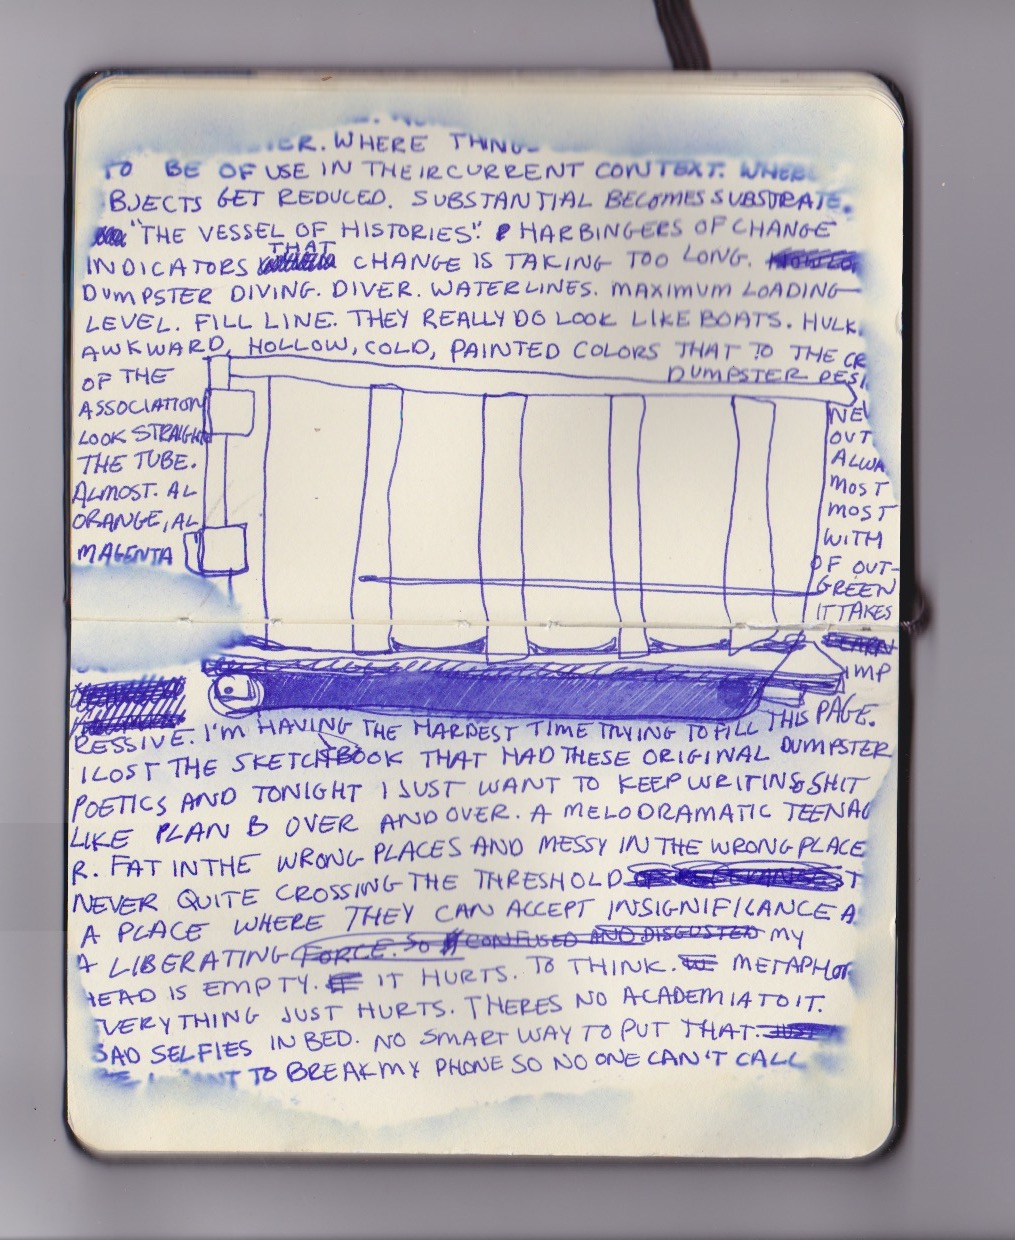 WHERE THING
TO BE OF USE IN THEIR CURRENT CONTEXT. WHERE
BJECTS GET REDUCED. SUBSTANTIAL BECOMES SUBSTRATE.
"THE VESSEL OF HISTORIES". HARBINGERS OF CHANGE
INDICATORS THAT CHANGE IS TAKING TOO LONG.
DUMPSTER DIVING. DIVER. WATERLINES. MAXIMUM LOADING
LEVEL. FILL LINE. THEY REALLY DO LOOK LIKE BOATS. HULK.
AWKWARD, HOLLOW, COLD, PAINTED COLORS THAT TO THE CR
OF THE DUMPSTER DESI
ASSOCIATION NEV
LOOK STRAIGH OUT
THE TUBE. ALWA
ALMOST. AL MOST
ORANGE, AL MOST
MAGENTA WITH
OF OUT-
GREEN
IT TAKES
LEARN
IMP
RESSIVE. I'M HAVING THE HARDEST TIME TRYING TO FILL THIS PAGE.
I LOST THE SKETCHBOOK THAT HAD THESE ORIGINAL DUMPSTER
POETICS AND TONIGHT I JUST WANT TO KEEP WRITING SHIT
LIKE PLAN B OVER AND OVER. A MELODRAMATIC TEENAG
R. FAT IN THE WRONG PLACES AND MESSY IN THE WRONG PLACE
NEVER QUITE CROSSING THE THRESHOLD T
A PLACE WHERE THEY CAN ACCEPT INSIGNIFICANCE A
A LIBERATING FORCE. SO CONFUSED AND DISGUSTED MY
HEAD IS EMPTY. IT HURTS. TO THINK. METAPHOR
VERYTHING JUST HURTS. THERES NO ACADEMIA TO IT.
SAD SELFIES IN BED. NO SMART WAY TO PUT THAT. JUST
WANT TO BREAK MY PHONE SO NO ONE CAN'T CALL